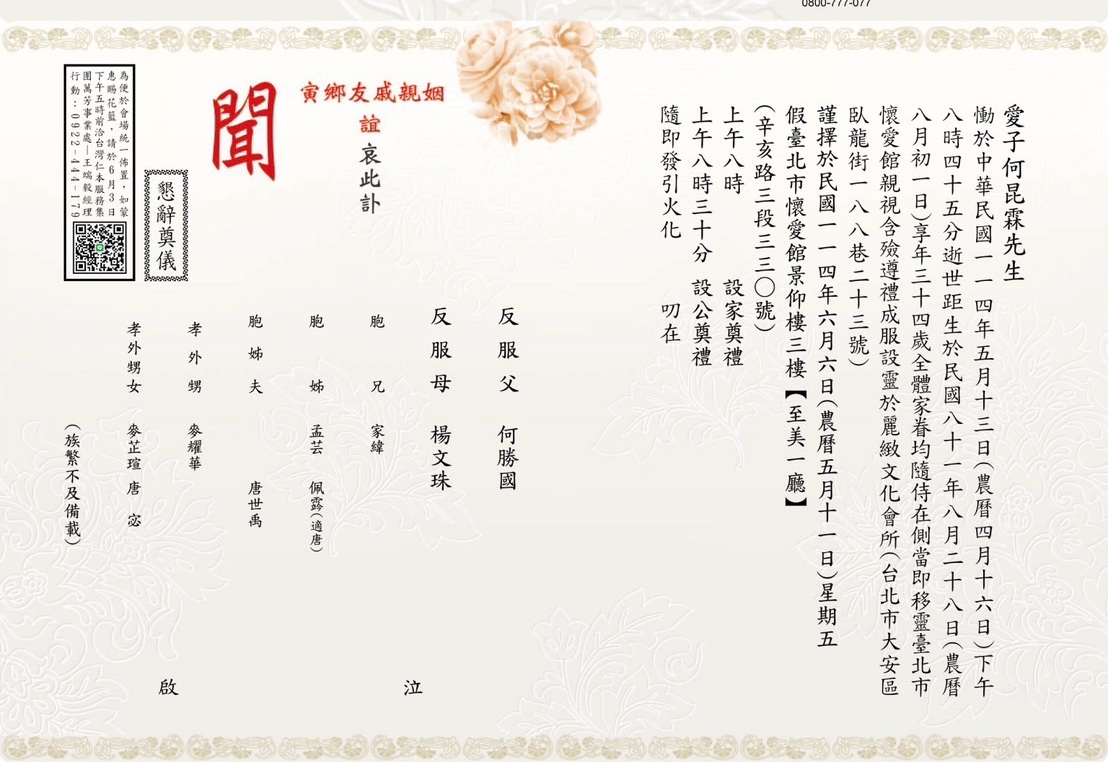 0800-777-077
愛子何昆霖先生
慟於中華民國一一四年五月十三日(農曆四月十六日)下午
八時四十五分逝世距生於民國八十一年八月二十八日(農曆
八月初一日)享年三十四歲全體家眷均隨侍在側當即移靈臺北市
懷愛館親視含殮遵禮成服設靈於麗緻文化會所(台北市大安區
臥龍街一八八巷二十三號)
謹擇於民國一一四年六月六日(農曆五月十一日)星期五
假臺北市懷愛館景仰樓三樓【至美一廳】
(辛亥路三段三三〇號)
上午八時 設家奠禮
上午八時三十分 設公奠禮
隨即發引火化 叨在
姻親戚友鄉寅
誼
哀此訃
聞
反服父 何勝國
反服母 楊文珠
胞兄 家緯
胞姊 孟芸 佩霠(適唐)
胞姊夫 唐世禹
孝外甥 麥耀華
孝外甥女 麥芷瑄 唐宓
(族繁不及備載)
泣
啟
懇辭奠儀
為便於會場統一佈置，如蒙
惠賜花籃，請於6月3日
下午五時前洽台灣仁本服務集
團萬芳事業處—王端毅經理
行動：0922-444-179